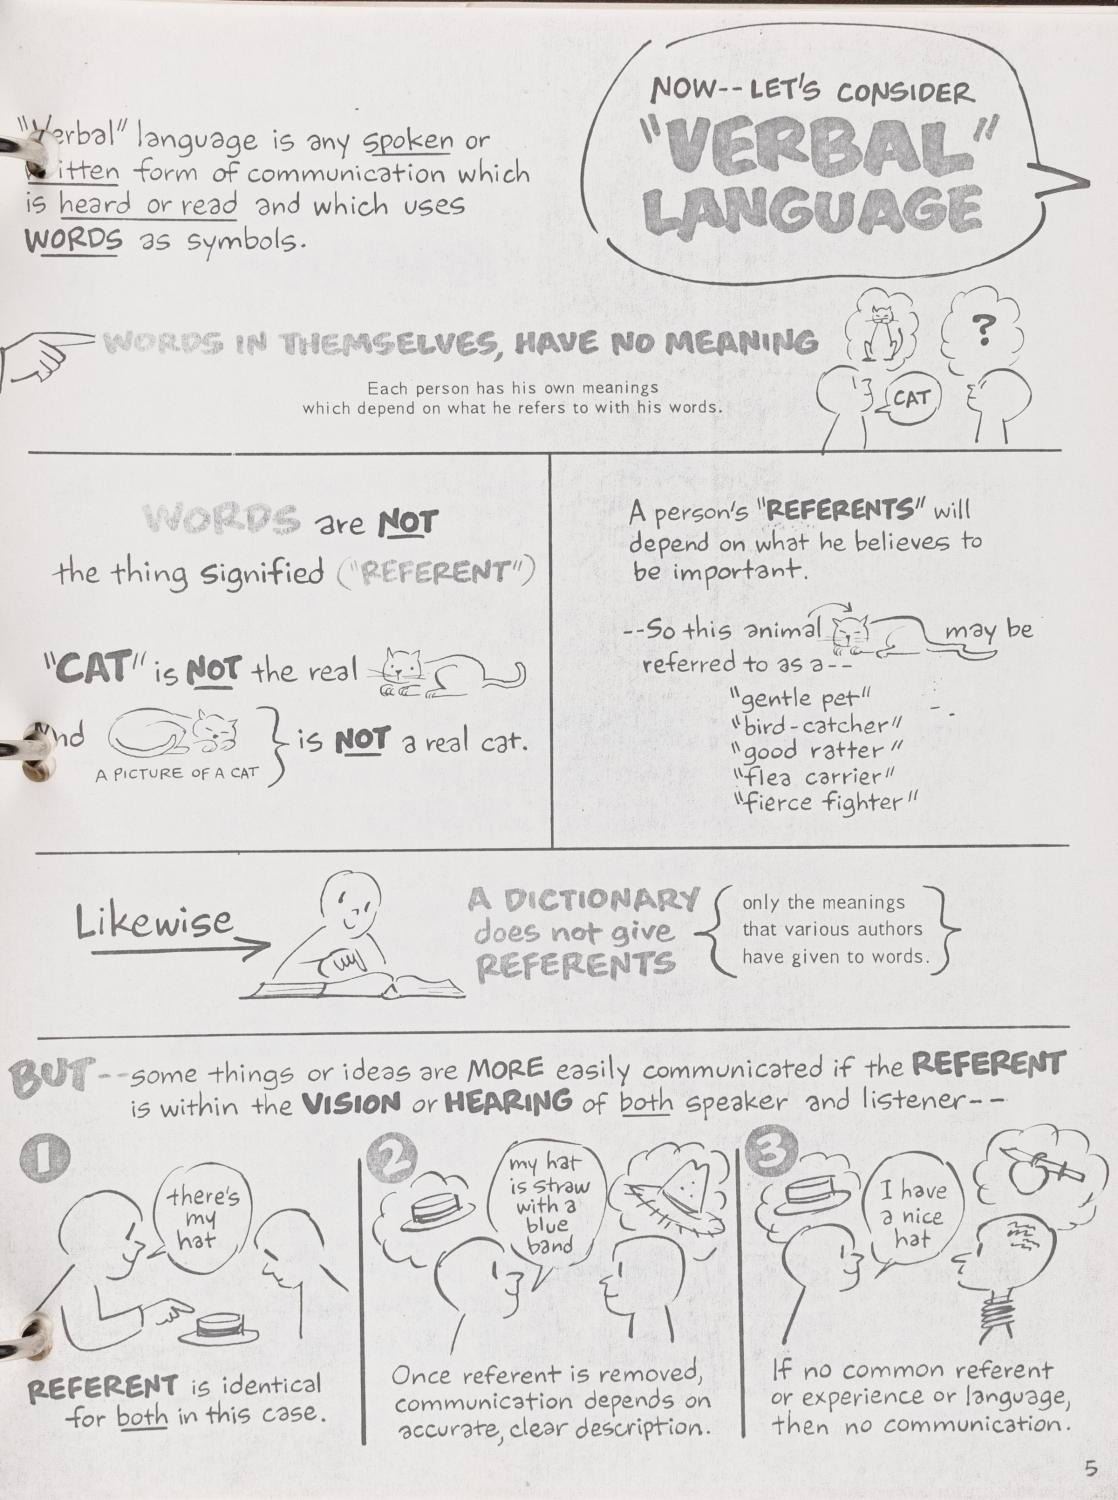 NOW--LET'S CONSIDER
"VERBAL"
LANGUAGE
"Verbal" language is any spoken or
written form of communication which
is heard or read and which uses
WORDS as symbols.
WORDS IN THEMSELVES, HAVE NO MEANING
Each person has his own meanings
which depend on what he refers to with his words.
?
CAT
WORDS are NOT
the thing signified ("REFERENT")
"CAT" is NOT the real
And
A PICTURE OF A CAT
is NOT a real cat.
A person's "REFERENTS" will
depend on what he believes to
be important.
--So this animal may be
referred to as a--
"gentle pet"
"bird-catcher"
"good ratter"
"flea carrier"
"fierce fighter"
Likewise
A DICTIONARY
does not give
REFERENTS
only the meanings
that various authors
have given to words.
BUT--some things or ideas are MORE easily communicated if the REFERENT
is within the VISION or HEARING of both speaker and listener--
1
there's
my
hat
REFERENT is identical
for both in this case.
2
my hat
is straw
with a
blue
band
Once referent is removed,
communication depends on
accurate, clear description.
3
I have
a nice
hat
If no common referent
or experience or language,
then no communication.
5